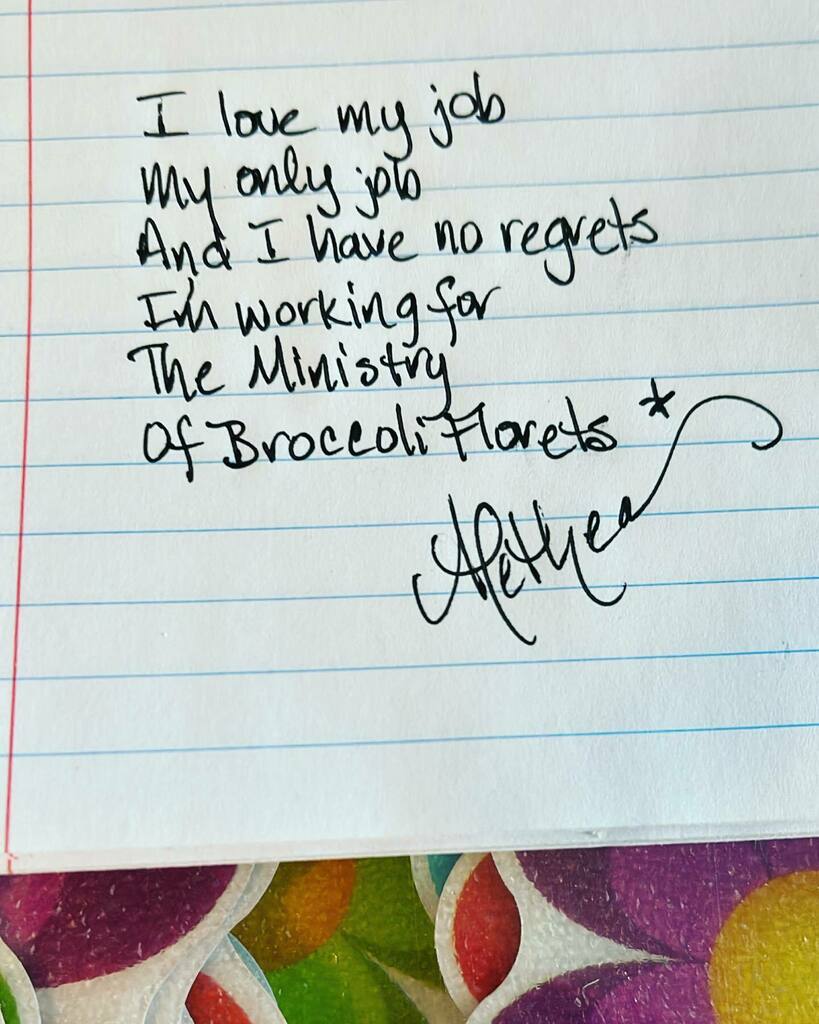 I love my job
My only job
And I have no regrets
I'm working for
The Ministry
Of Broccoli Florets *
Alethea